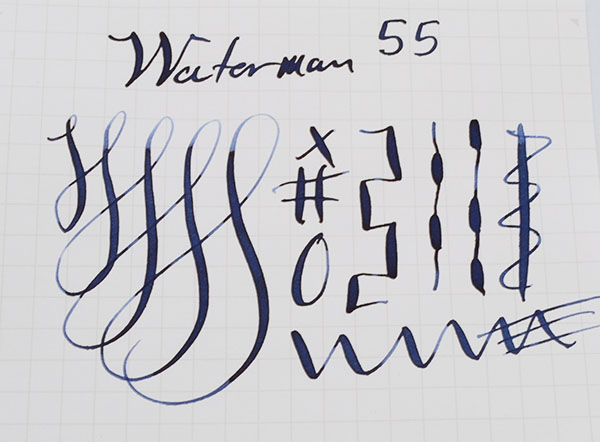 Waterman 55
x
#
o